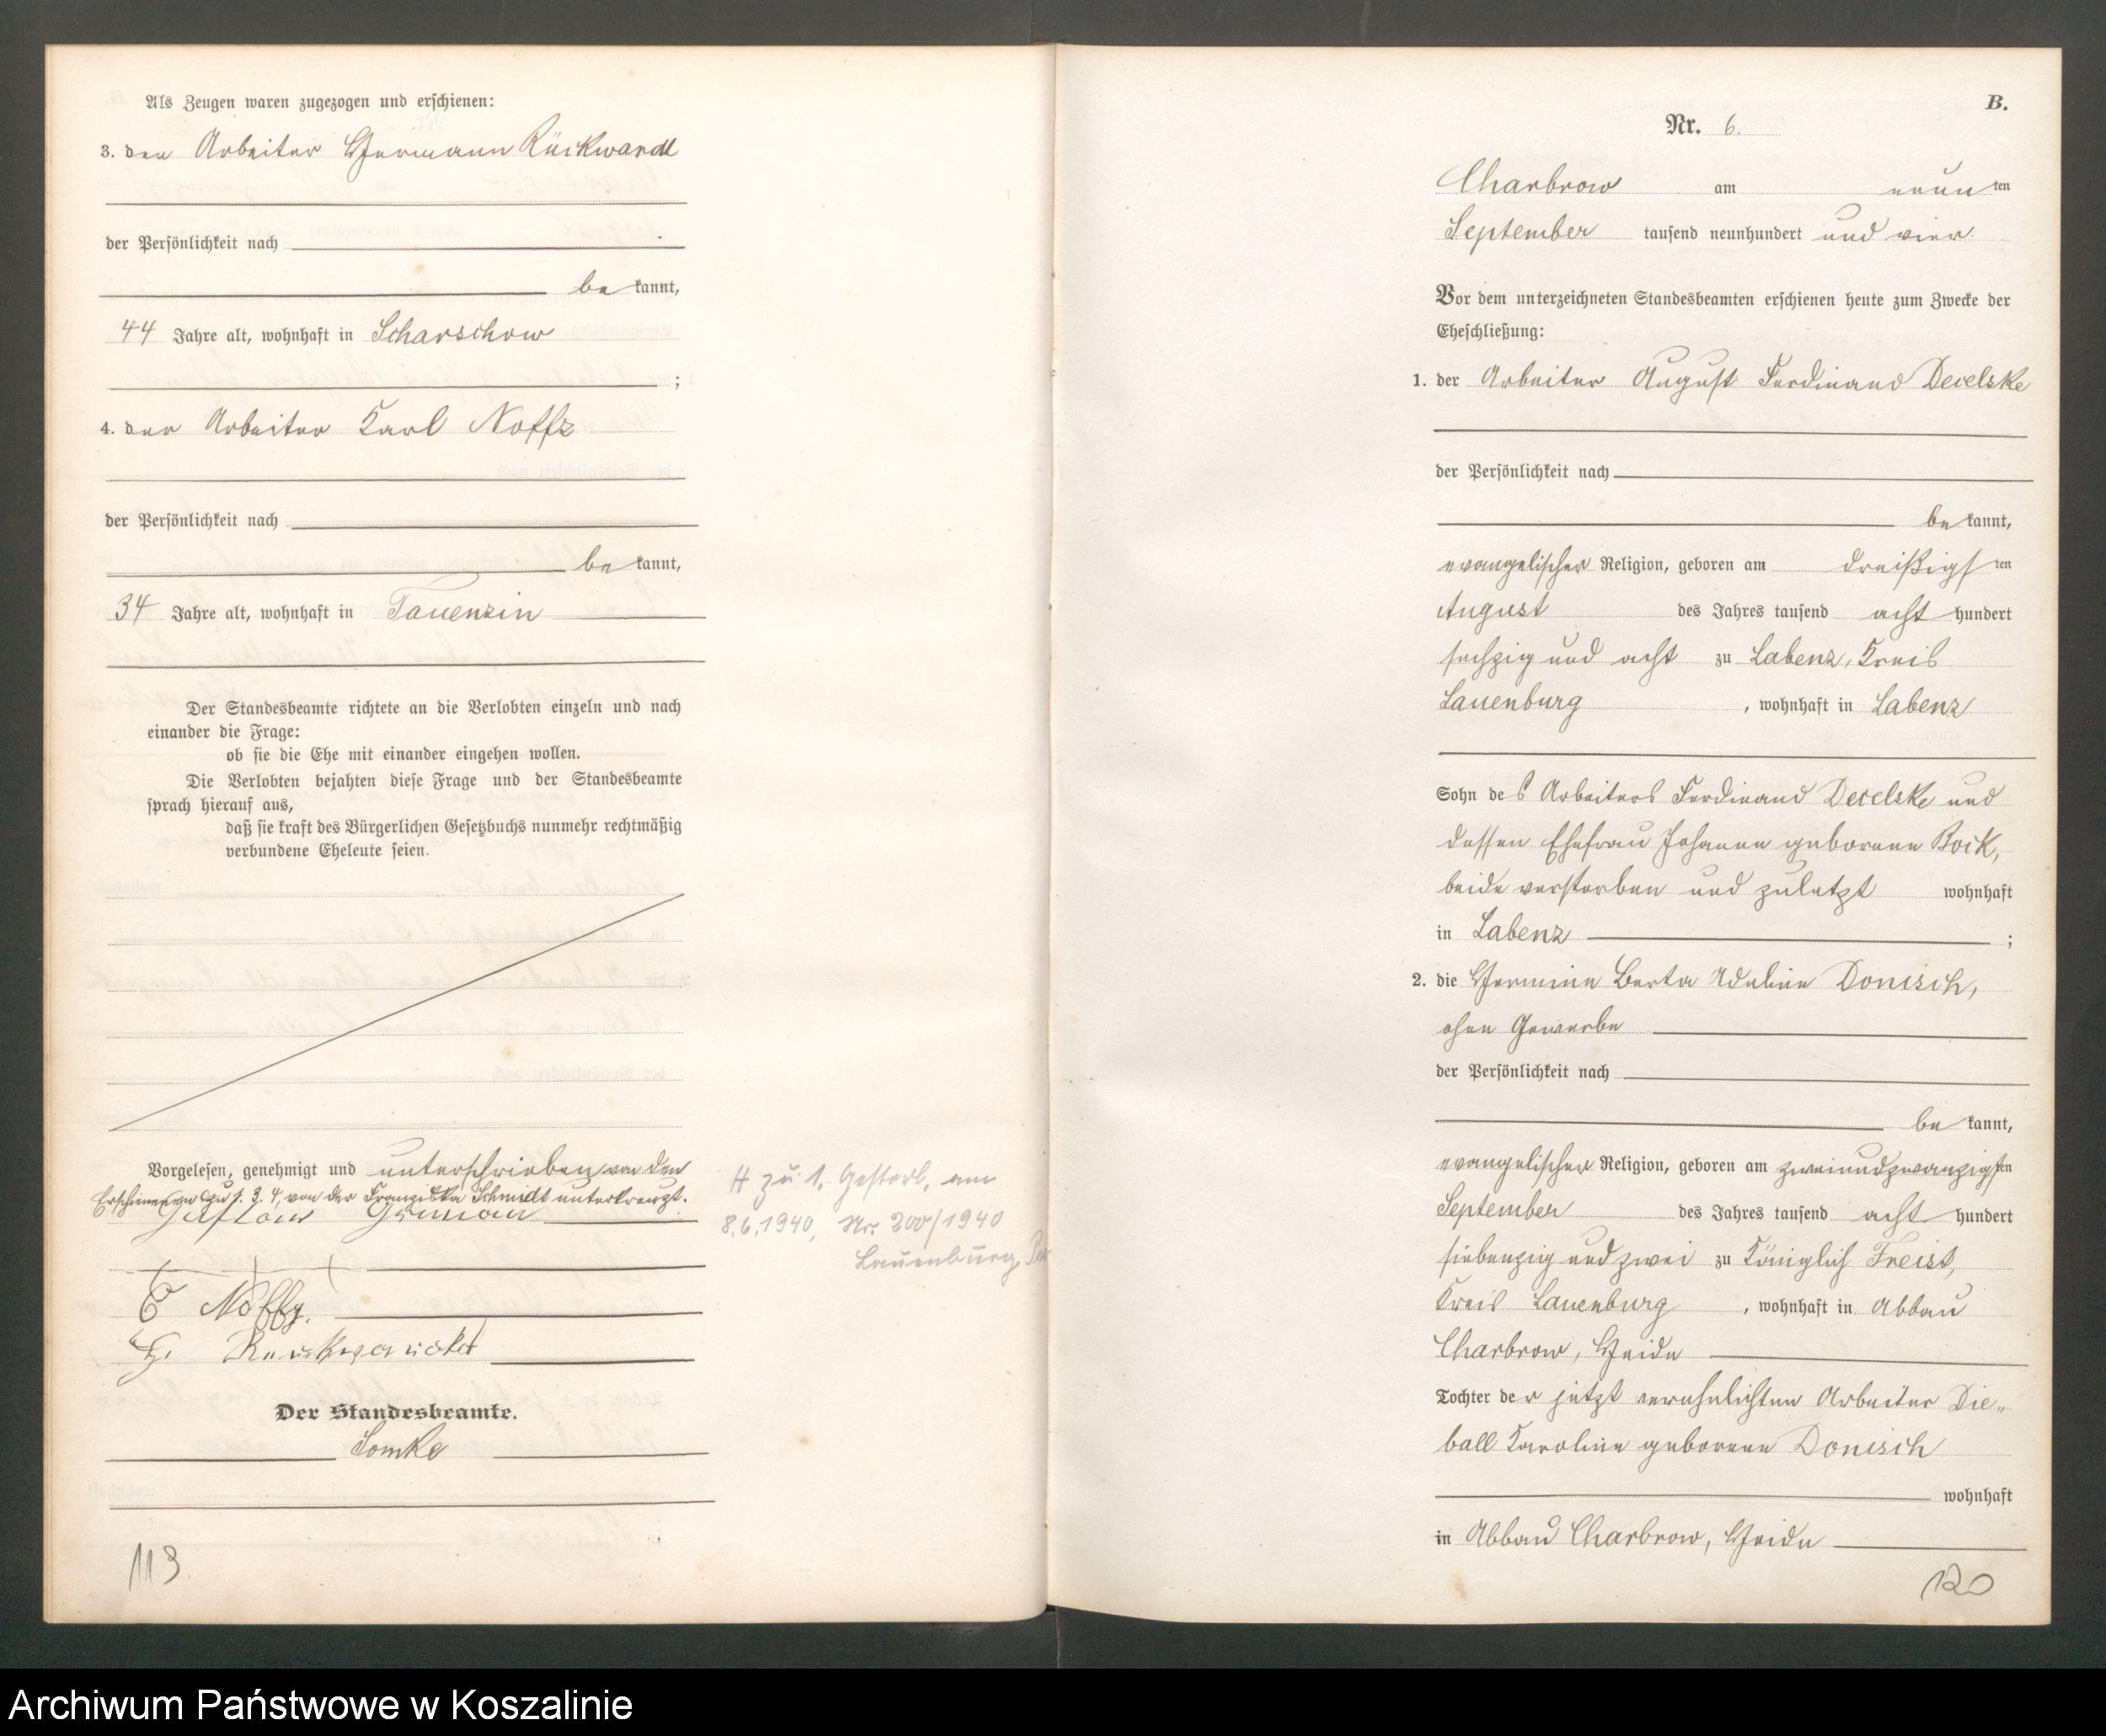 Als Zeugen waren zugezogen und erschienen:
3. der Arbeiter Hermann Rückwardt
der Persönlichkeit nach
bekannt,
44 Jahre alt, wohnhaft in Scharschow
;
4. der Arbeiter Karl Noffz
der Persönlichkeit nach
bekannt,
34 Jahre alt, wohnhaft in Tauenzin
Der Standesbeamte richtete an die Verlobten einzeln und nach
einander die Frage:
ob sie die Ehe mit einander eingehen wollen.
Die Verlobten bejahten diese Frage und der Standesbeamte
sprach hierauf aus,
daß sie kraft des Bürgerlichen Gesetzbuchs nunmehr rechtmäßig
verbundene Eheleute seien.
Vorgelesen, genehmigt und unterschrieben von den
Erschienenen zu 1. 3. 4, von der Franziska Schmidt unterkreuzt.
Gustav
+ + +
Noffz.
H.
Der Standesbeamte.
Lomke
113
H zu 1. Gestorb. am
8.6.1940, Nr. 200/1940
Lauenburg, Pom
B.
Nr. 6.
Charbrow am neunten
September tausend neunhundert und vier
Vor dem unterzeichneten Standesbeamten erschienen heute zum Zwecke der
Eheschließung:
1. der Arbeiter August Ferdinand Decelske
der Persönlichkeit nach
bekannt,
evangelischer Religion, geboren am dreißigsten
August des Jahres tausend acht hundert
sechzig und acht zu Labenz, Kreis
Lauenburg, wohnhaft in Labenz
Sohn des Arbeiters Ferdinand Decelske und
dessen Ehefrau Johanne geborene Bock,
beide verstorben und zuletzt wohnhaft
in Labenz ;
2. die Hermine Berta Adeline Donisch,
ohne Gewerbe
der Persönlichkeit nach
bekannt,
evangelischer Religion, geboren am zweiundzwanzigsten
September des Jahres tausend acht hundert
siebenzig und zwei zu Königlich Freist,
Kreis Lauenburg, wohnhaft in Abbau
Charbrow, Heide
Tochter der jetzt verehelichten Arbeiter Die„
ball Karoline geborene Donisch
wohnhaft
in Abbau Charbrow, Heide
120
Archiwum Państwowe w Koszalinie